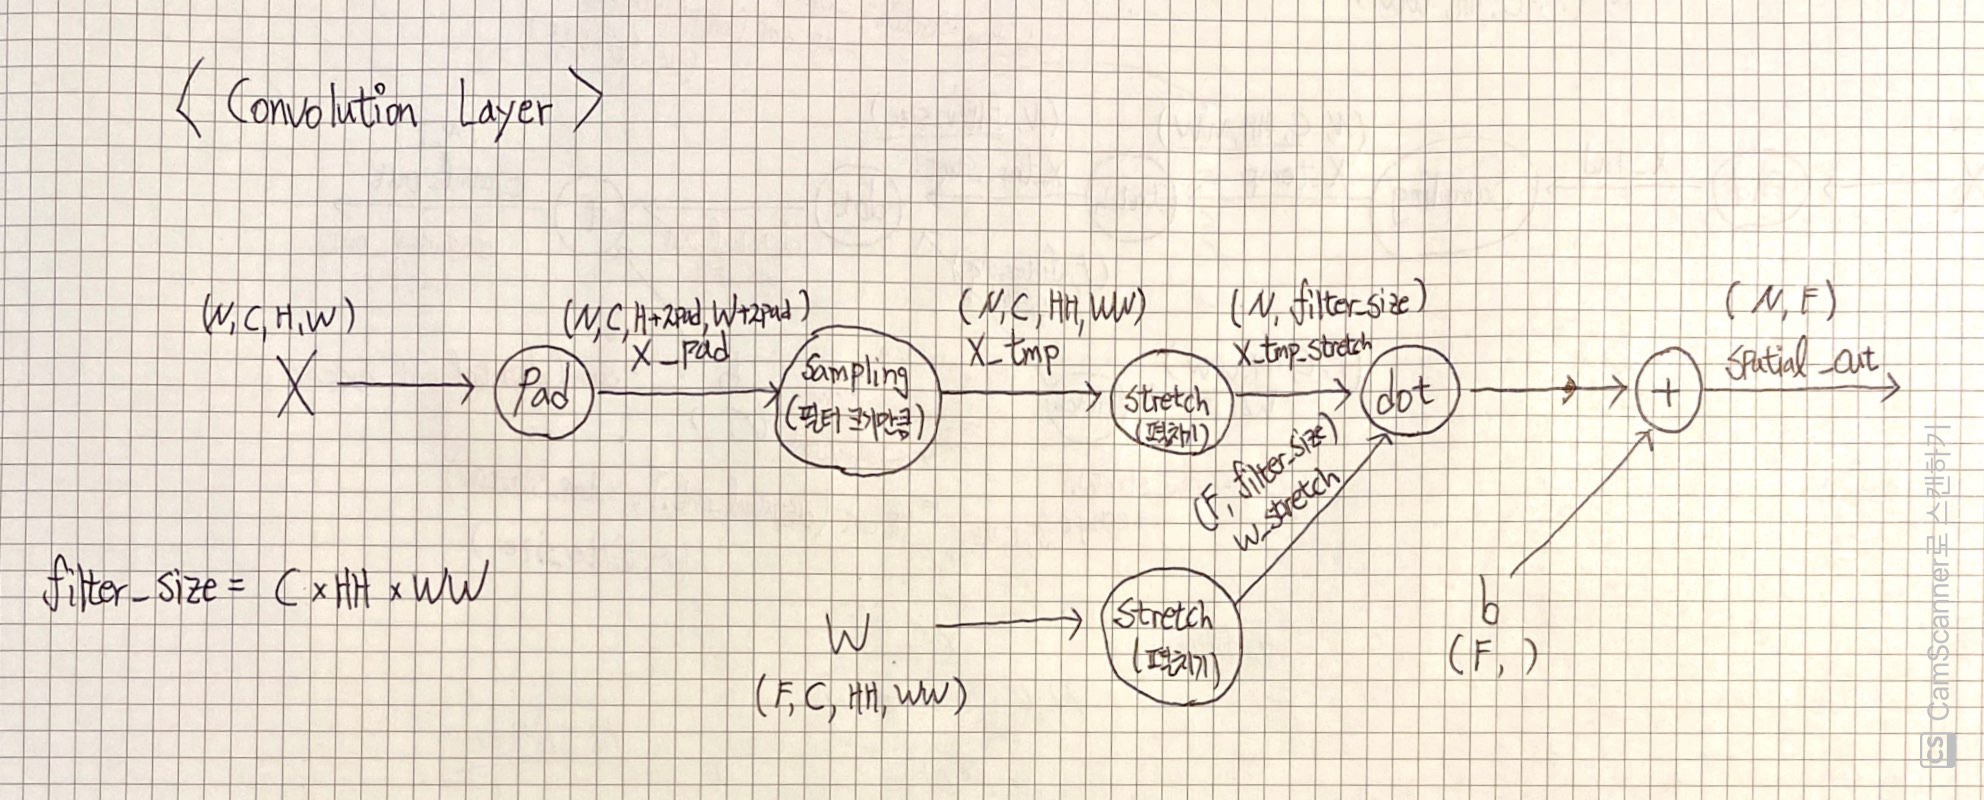 < Convolution Layer >
(N, C, H, W)
X
Pad
(N, C, H+2pad, W+2pad)
X_pad
Sampling
(필터 크기만큼)
(N, C, HH, WW)
X_tmp
Stretch
(펼치기)
(N, filter_size)
X_tmp_stretch
dot
(F, filter_size)
W_stretch
+
(N, F)
spatial_out
filter_size = C × HH × WW
W
(F, C, HH, WW)
Stretch
(펼치기)
b
(F, )
CS CamScanner로 스캔하기